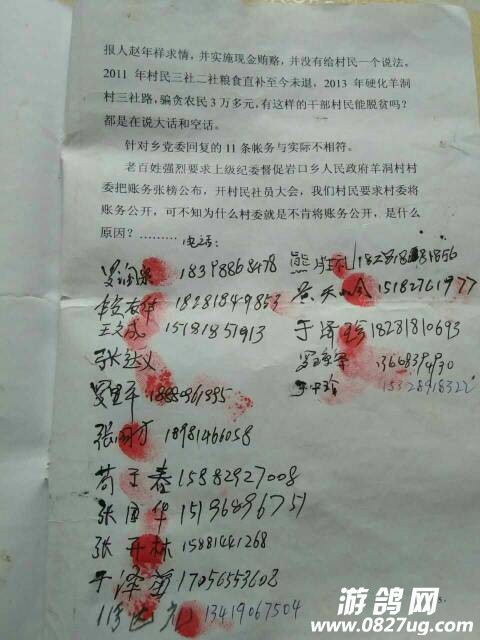 报人赵年样求情，并实施现金贿赂，并没有给村民一个说法。
2011 年村民三社二社粮食直补至今未退，2013 年硬化羊洞
村三社路，骗贪农民 3 万多元，有这样的干部村民能脱贫吗？
都是在说大话和空话。
针对乡党委回复的 11 条帐务与实际不相符。
老百姓强烈要求上级纪委督促岩口乡人民政府羊洞村村
委把账务张榜公布，开村民社员大会，我们村民要求村委将
账务公开，可不知为什么村委就是不肯将账务公开，是什么
原因？………
电话：
18398868478
18281849853
王文成 15181851913
张达义
罗 平
张国方 18981466058
苟于春 15882927008
张国华 15196896751
张开林 15881441268
于泽 17056553608
13419067504
熊
15182761977
于泽珍 18281810693
15328918322
游鸽网
www.0827ug.com